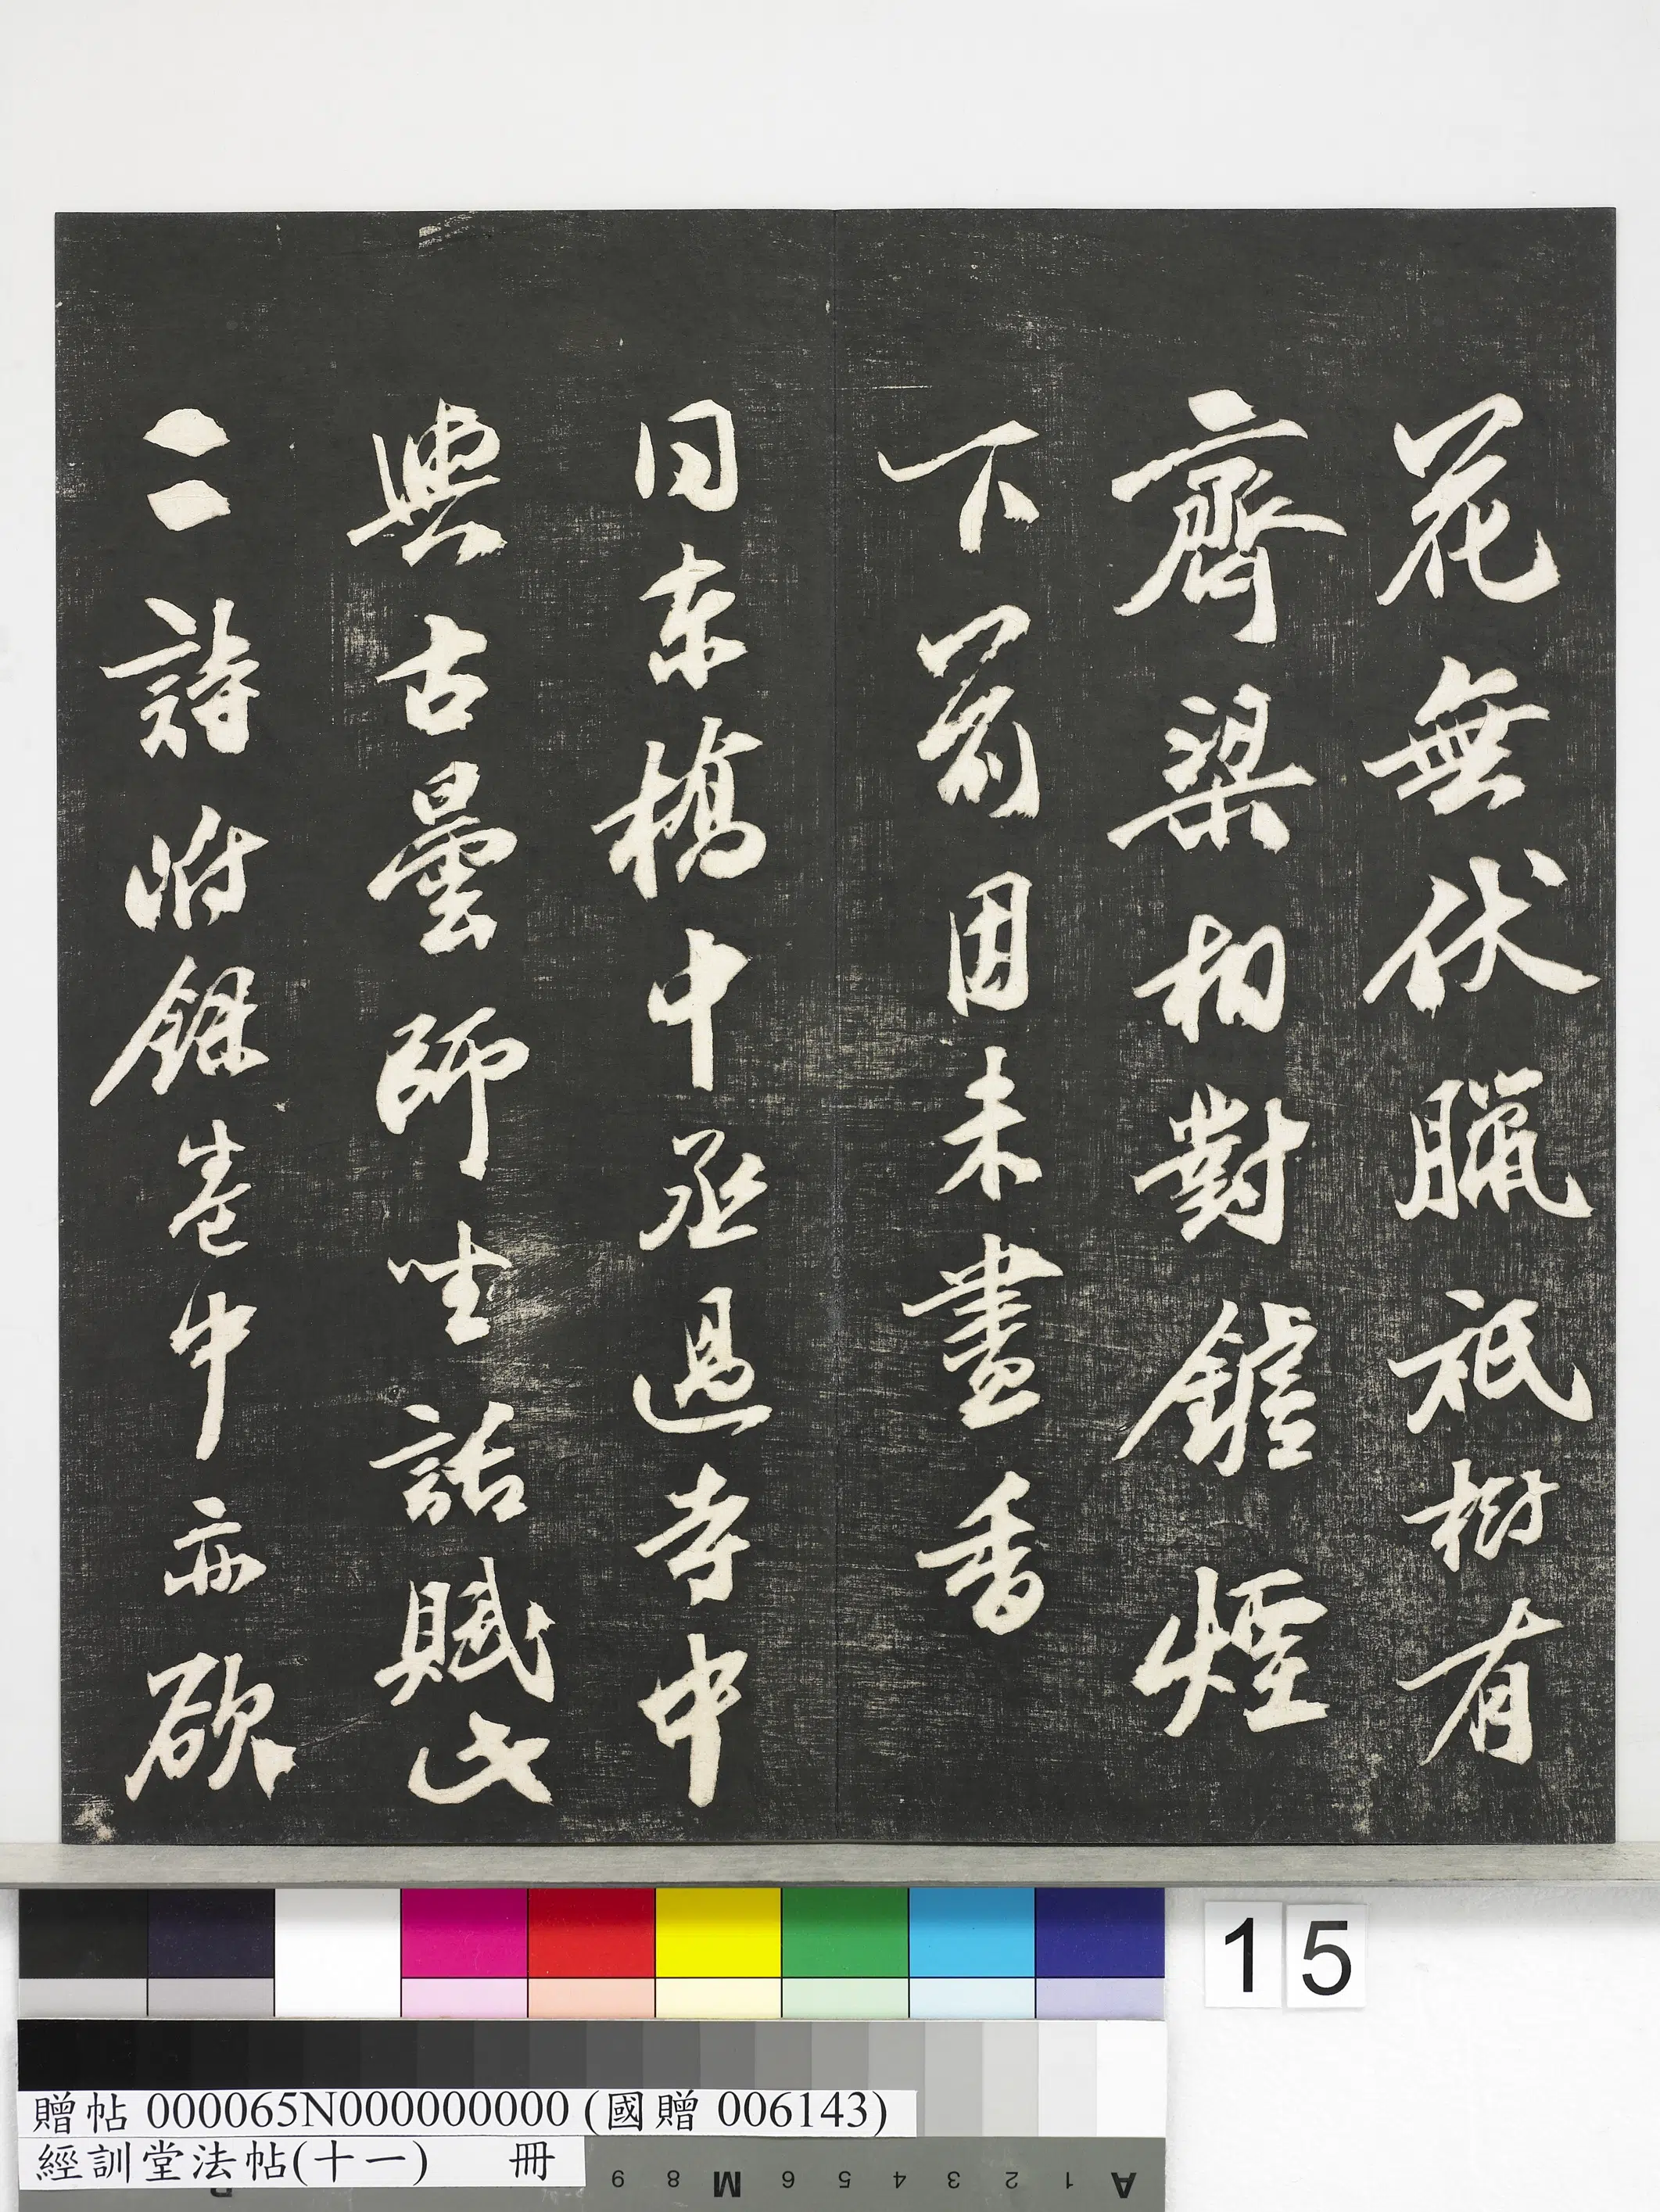 花無伏臘祇樹有
齊梁相對鑪煙
下前因未盡香
同東橋中丞過寺中
與古曇師坐話賦此
二詩附錄卷中亦欲
15
贈帖 000065N000000000 (國贈 006143)
經訓堂法帖(十一) 冊
A 1 2 3 4 5 6 M 8 9